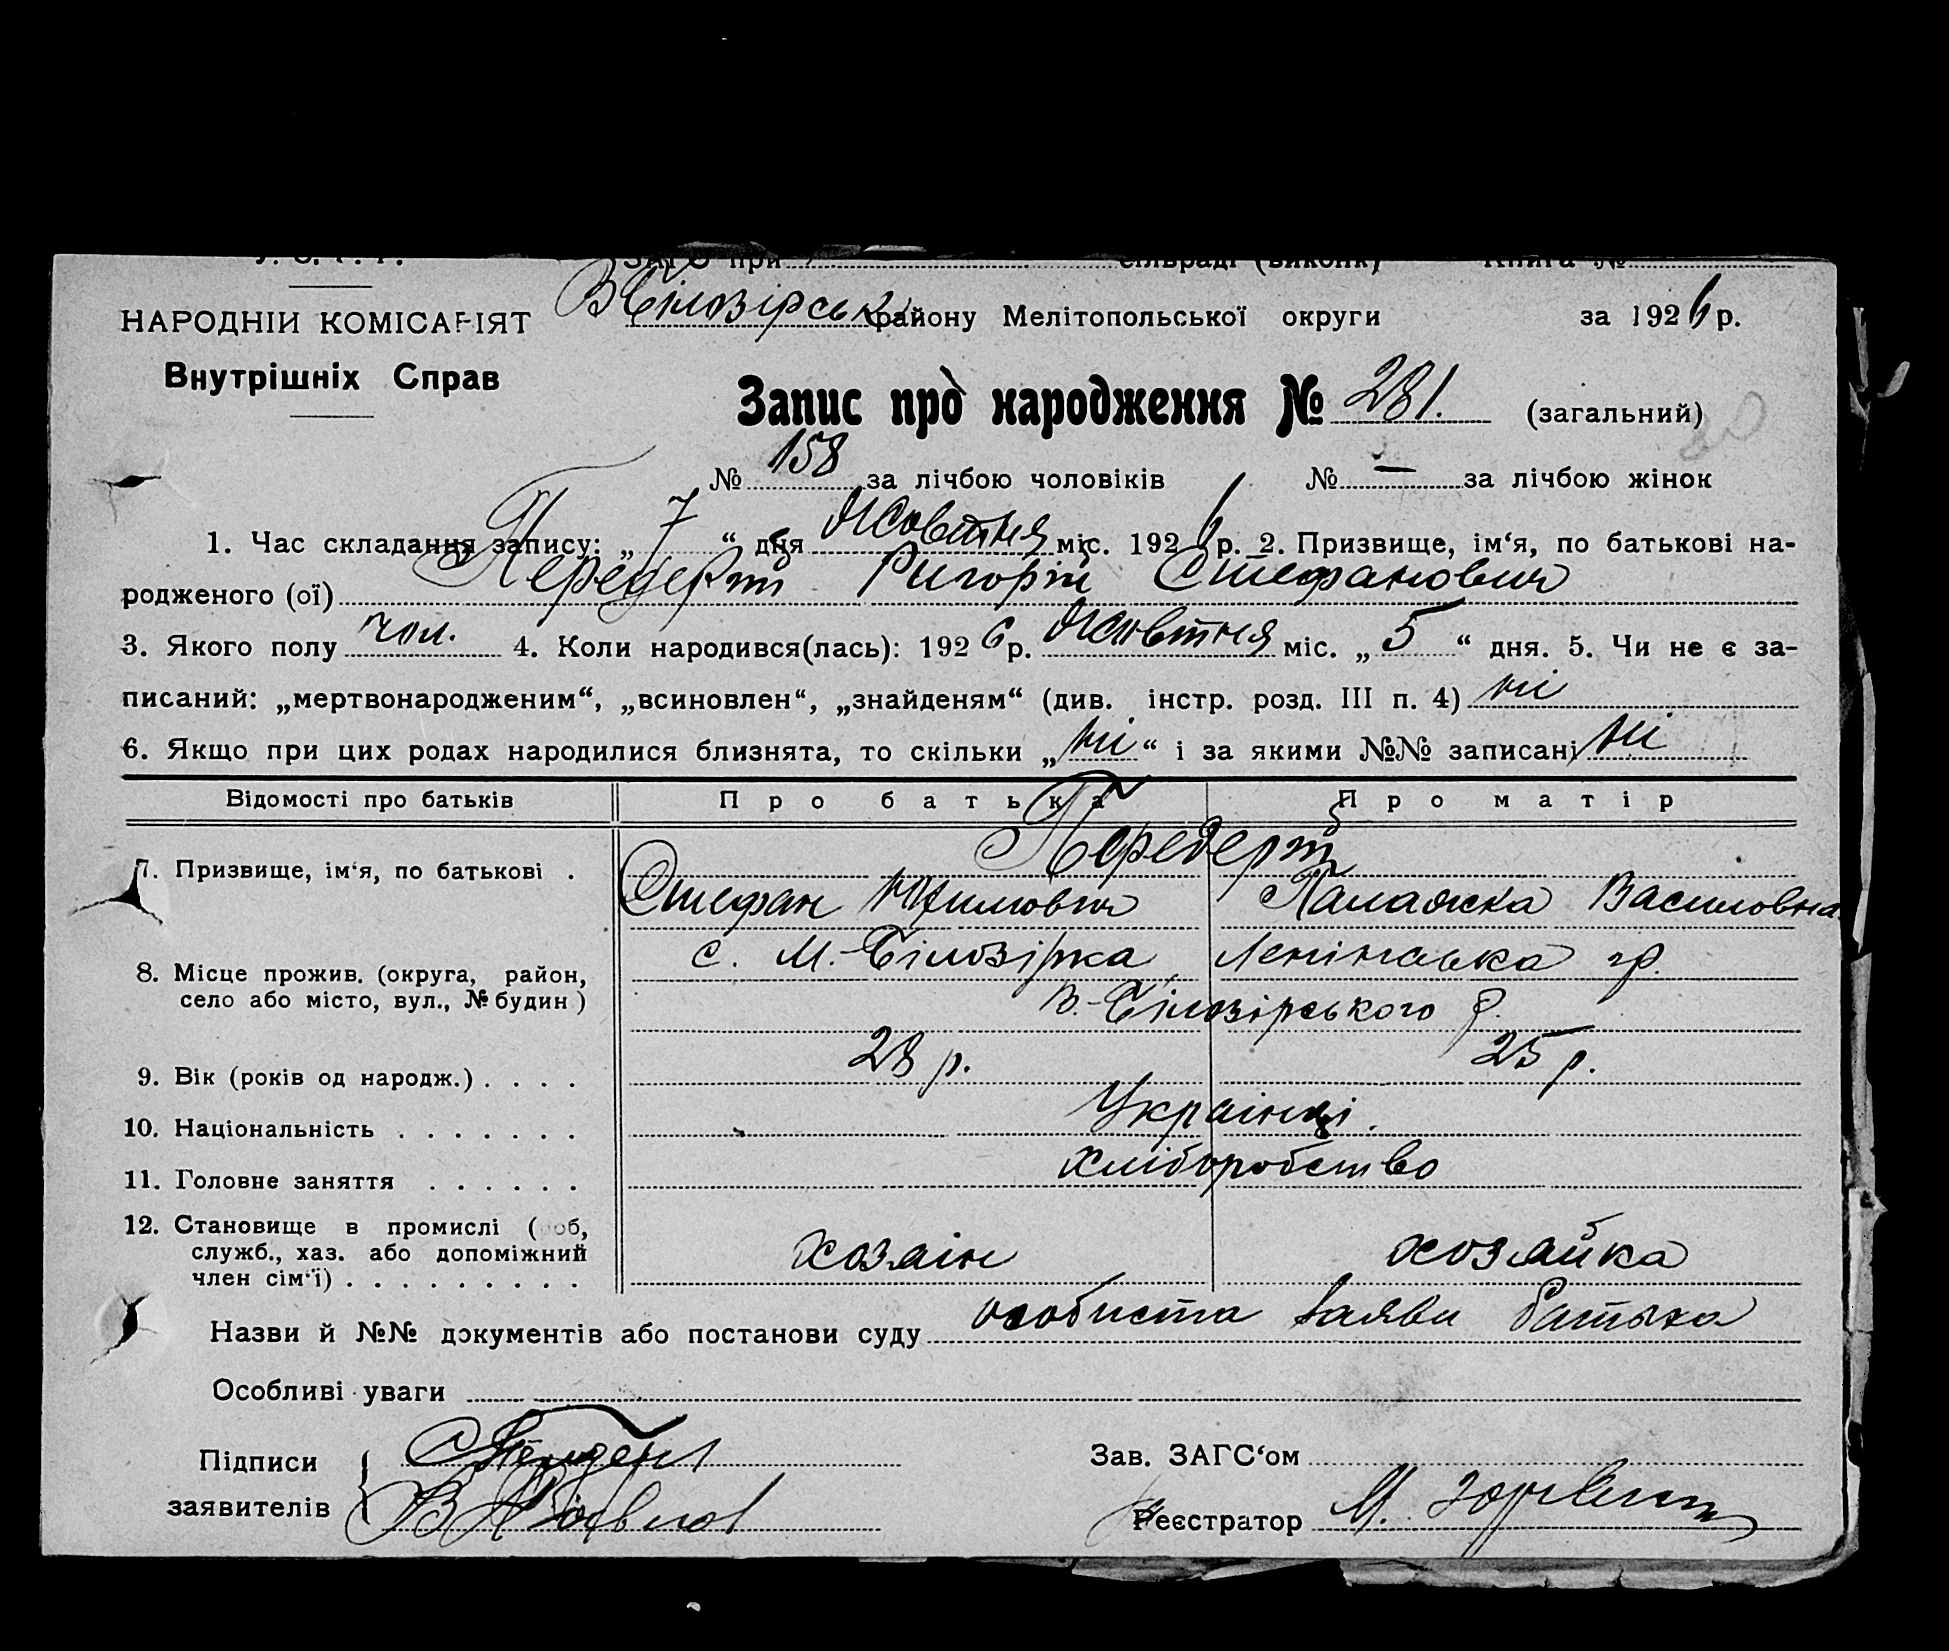 У. С. Р. Р. ЗАГС при сільраді (виконк) Книга №
НАРОДНІЙ КОМІСАРІЯТ В Білозірськ району Мелітопольської округи за 1926 р.
Внутрішніх Справ
Запис про народження № 281. (загальний)
№ 158 за лічбою чоловіків № — за лічбою жінок
1. Час складання запису: „7“ дня жовтня міс. 1926 р. 2. Призвище, ім‘я, по батькові на-
родженого (ої) Передерій Григорій Стефанович
3. Якого полу чол. 4. Коли народився(лась): 1926 р. жовтня міс. „5“ дня. 5. Чи не є за-
писаний: „мертвонародженим“, „всиновлен“, „знайденям“ (див. інстр. розд. III п. 4) ні
6. Якщо при цих родах народилися близнята, то скільки „ні“ і за якими №№ записані ні
Відомості про батьків Про батька Про матір
Передерій
7. Призвище, ім‘я, по батькові .
Стефан Палажка Василовна
8. Місце прожив. (округа, район, с. М.-Білозірка, Ленінська гр.
село або місто, вул., № будин) В.-Білозірського р.
9. Вік (років од народж.) . . . . 28 р. 25 р.
10. Національність . . . . . . . Українці.
11. Головне заняття . . . . . . хліборобство
12. Становище в промислі (роб,
служб., хаз. або допоміжний хозяін хозяйка
член сім‘ї) . . . . . . . . .
Назви й №№ документів або постанови суду особиста заява батька
Особливі уваги
Підписи Зав. ЗАГС‘ом
заявителів Реєстратор М.